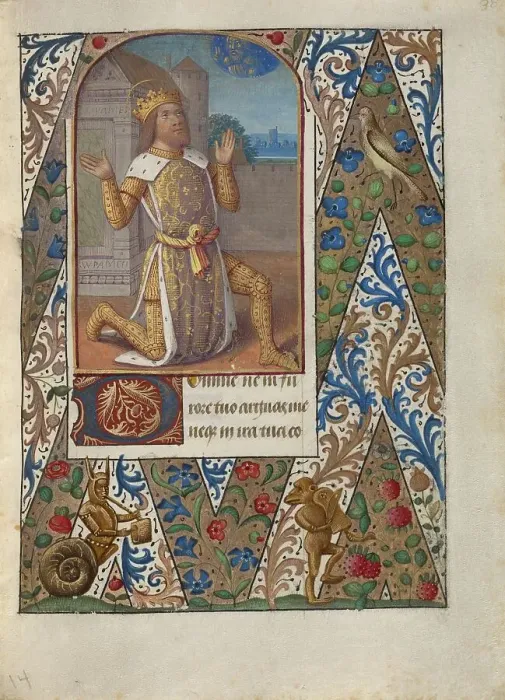 Domine ne in fu
rore tuo arguas me
neq in ira tua co
14